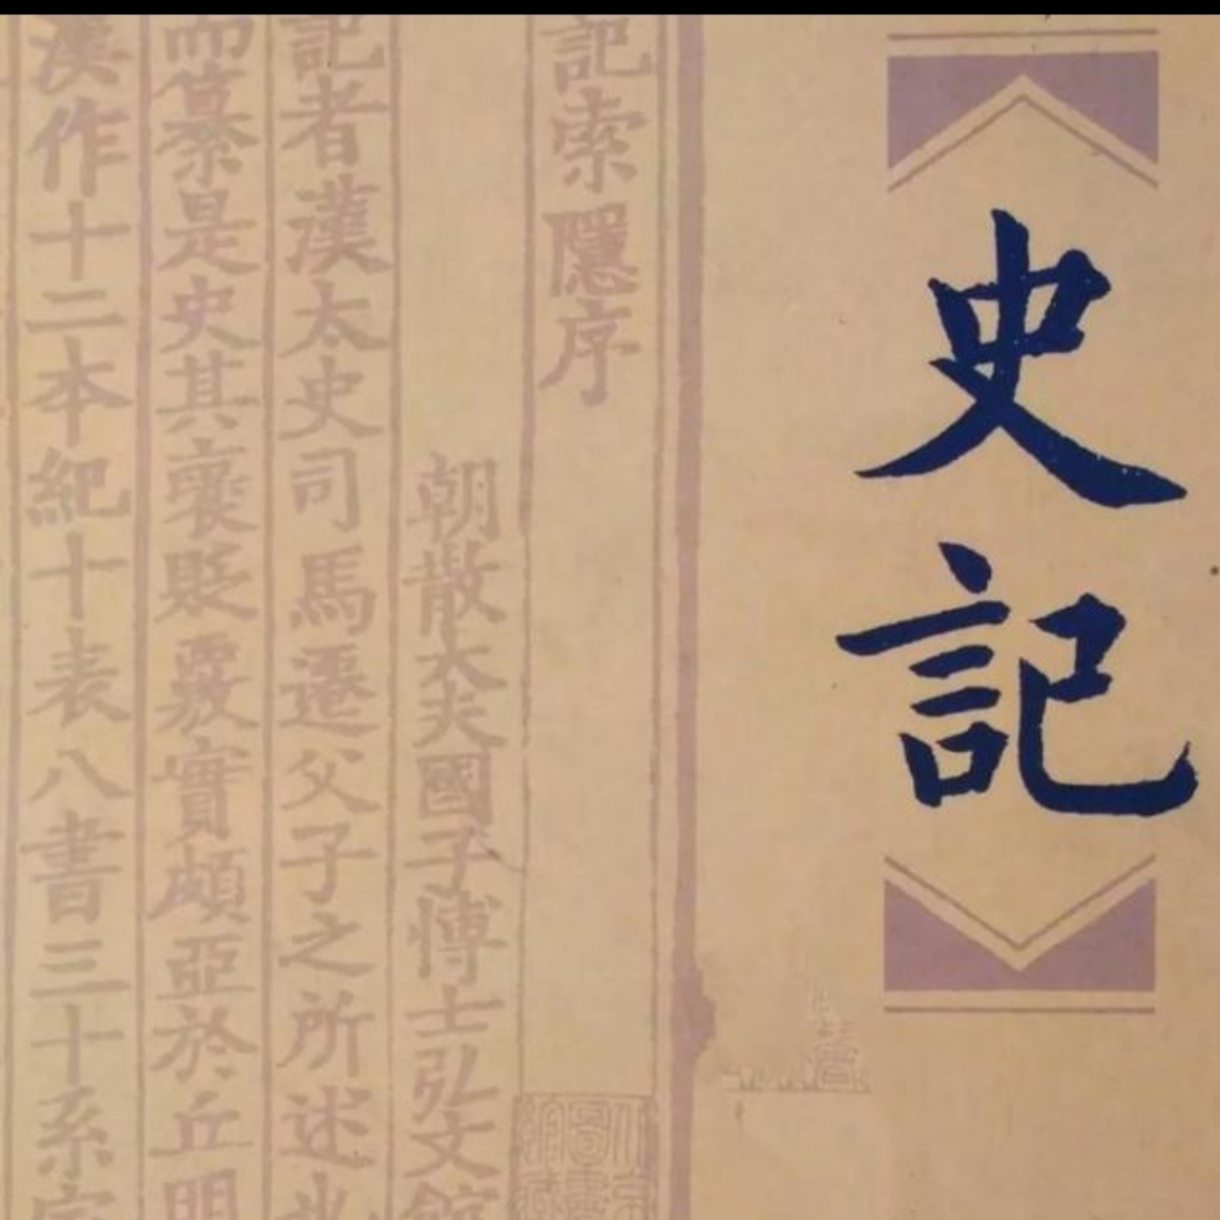 史記
記索隱序
朝散大夫國子博士弘文館
記者漢太史司馬遷父子之所述也
而纂是史其襃貶覈實頗亞於丘明
漢作十二本紀十表八書三十系家